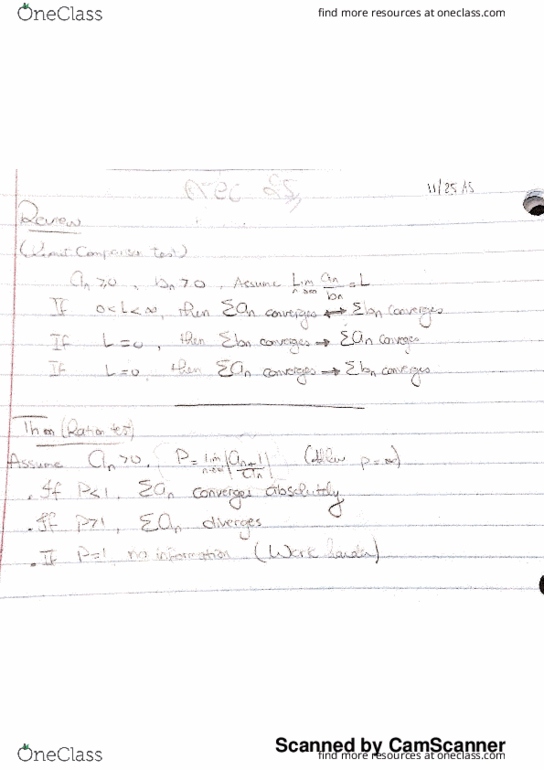 OneClass
find more resources at oneclass.com
11/25
Review
(Limit Comparison test)
an ≥ 0, bn > 0, Assume Lim n→∞ an/bn = L
If 0 < L < ∞, then Σan converges ↔ Σbn converges
If L = 0, then Σbn converges → Σan converges
If L = 0, then Σan converges → Σbn converges
Thm (Ration test)
Assume an > 0, P = lim n→∞ |an+1/an| (Allow p = ∞)
. If P<1, Σan converges absolutely
. If P>1, Σan diverges
. If P=1 no information (Work harder)
Scanned by CamScanner
OneClass
find more resources at oneclass.com